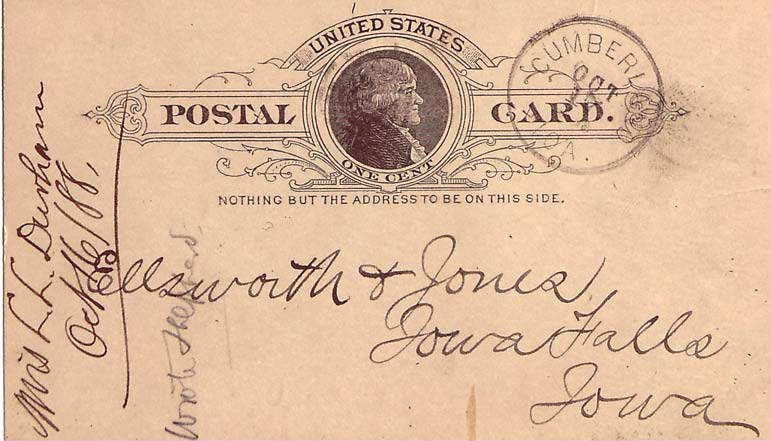 UNITED STATES
POSTAL CARD.
ONE CENT
NOTHING BUT THE ADDRESS TO BE ON THIS SIDE.
CUMBERL
OCT
IOA.
Ellsworth & Jones,
Iowa Falls
Iowa
Mrs L. L. Durham
Oct 16/88.
Wrote